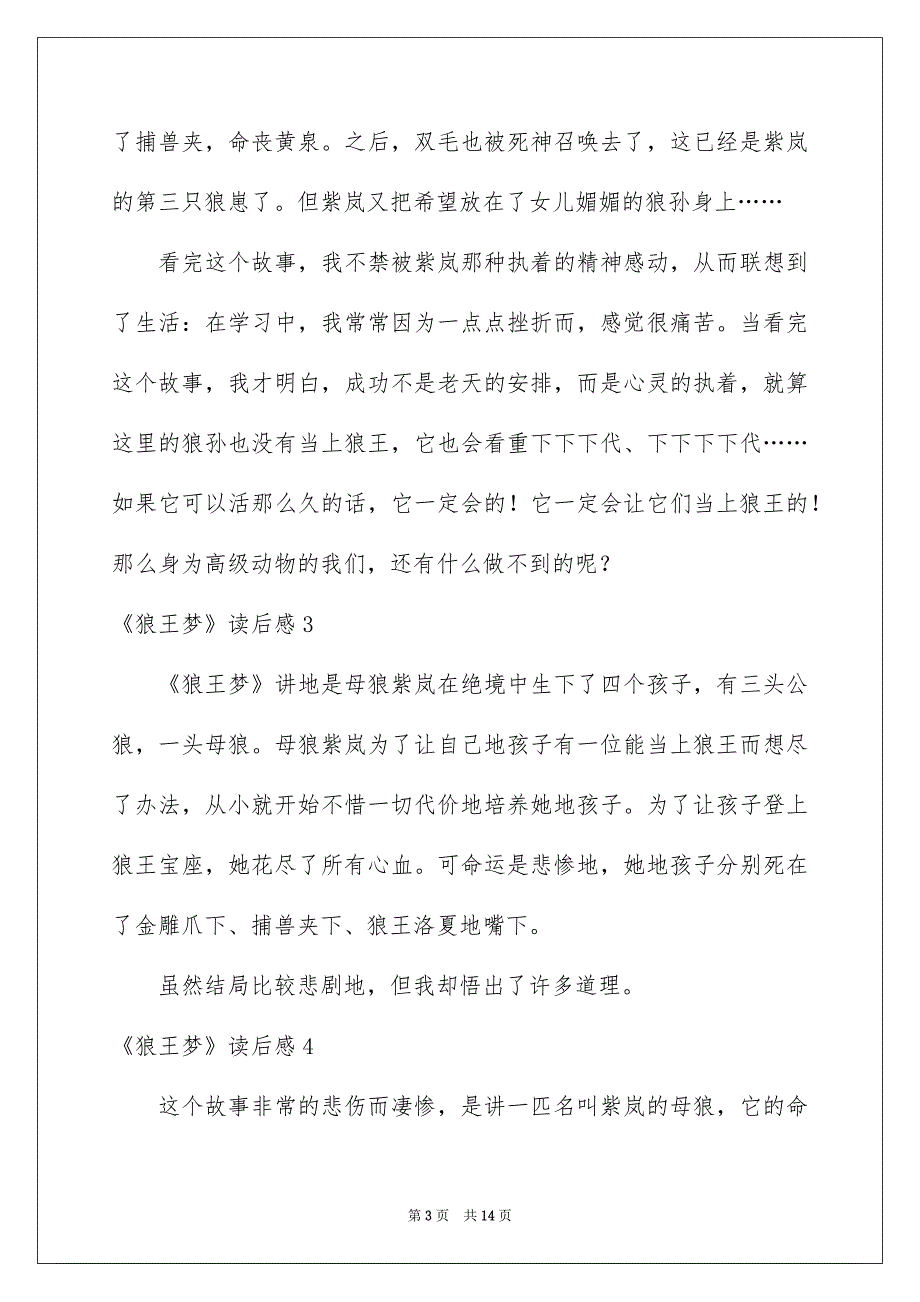 了捕兽夹，命丧黄泉。之后，双毛也被死神召唤去了，这已经是紫岚
的第三只狼崽了。但紫岚又把希望放在了女儿媚媚的狼孙身上……
看完这个故事，我不禁被紫岚那种执着的精神感动，从而联想到
了生活：在学习中，我常常因为一点点挫折而，感觉很痛苦。当看完
这个故事，我才明白，成功不是老天的安排，而是心灵的执着，就算
这里的狼孙也没有当上狼王，它也会看重下下下代、下下下下代……
如果它可以活那么久的话，它一定会的！它一定会让它们当上狼王的！
那么身为高级动物的我们，还有什么做不到的呢？
《狼王梦》读后感 3
《狼王梦》讲地是母狼紫岚在绝境中生下了四个孩子，有三头公
狼，一头母狼。母狼紫岚为了让自己地孩子有一位能当上狼王而想尽
了办法，从小就开始不惜一切代价地培养她地孩子。为了让孩子登上
狼王宝座，她花尽了所有心血。可命运是悲惨地，她地孩子分别死在
了金雕爪下、捕兽夹下、狼王洛夏地嘴下。
虽然结局比较悲剧地，但我却悟出了许多道理。
《狼王梦》读后感 4
这个故事非常的悲伤而凄惨，是讲一匹名叫紫岚的母狼，它的命
第 3 页 共 14 页